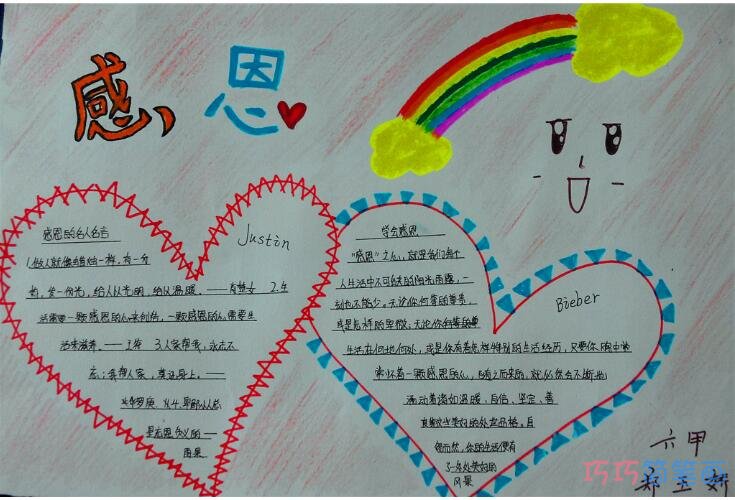 感恩
感恩的名人名言
Justin
1.做人就像蜡烛一样,有一分
热,发一份光,给人以光明,给以温暖。——肖楚女 2.生
活需要一颗感恩的心来创造,一颗感恩的心需要生
活来滋养。—— 3人家帮我,永志不
忘;我帮人家,莫记心上。——
华罗庚
学会感恩
Bieber
"感恩"之心,就是我们每个
人生活中不可或缺的阳光雨露,一
刻也不能少。无论你何等的尊贵,
或是怎样的卑微;无论你
生活在何地何处,或是你有着怎样特别的生活经历,只要你胸中常
常怀着一颗感恩的心,随之而来的,就必然会不断地
涌动着诸如温暖、自信、坚定、善
良
然而然,你的生活便有
了一
风景
六甲